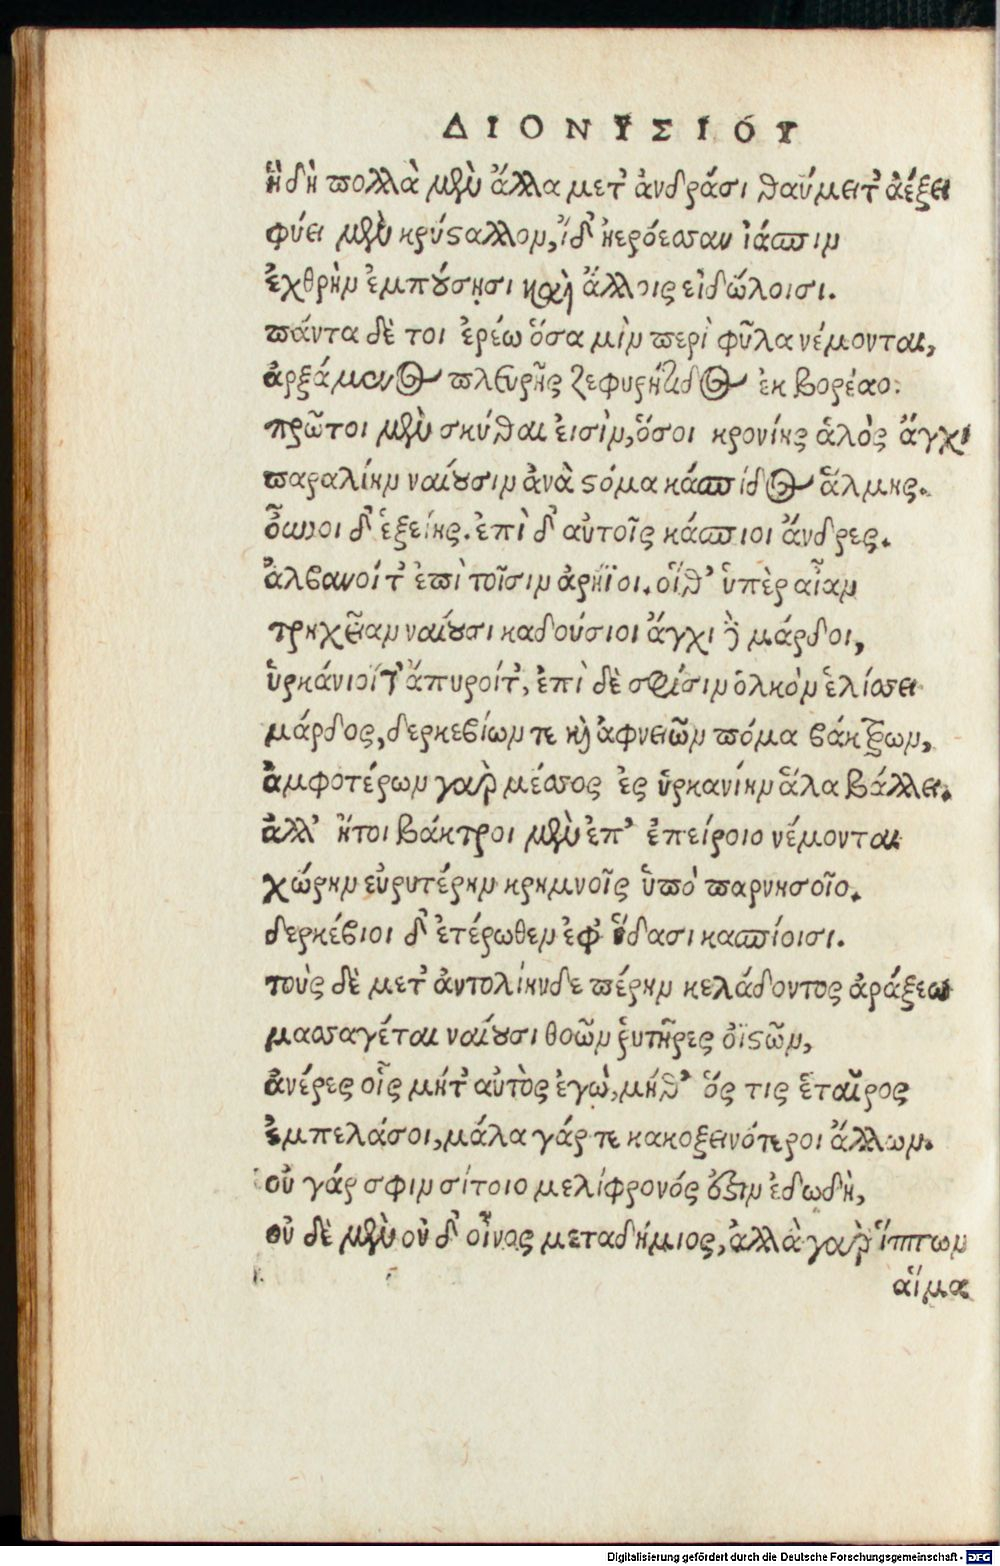 ΔΙΟΝΥΣΙΌΥ
ἤδη πολλὰ μὲν ἄλλα μετ' ἀνδράσι θαύματ' ἀέξει
φύει μὲν κρύσταλλον, ἰδ' ἠερόεσσαν ἰάσπιν
ἐχθρὴν ἐμπούσησι καὶ ἄλλοις εἰδώλοισι.
πάντα δὲ τοι ἐρέω ὅσα μὶν περὶ φῦλα νέμονται,
ἀρξάμενος πλευρῆς ζεφυρηίδος ἐκ βορέαο:
πρῶτοι μὲν σκύθαι εἰσὶν, ὅσοι κρονίης ἁλὸς ἄγχι
παραλίην ναίουσιν ἀνὰ στόμα κάσπιδος ἅλμης.
οὖννοι δ' ἑξείης. ἐπὶ δ' αὐτοῖς κάσπιοι ἄνδρες.
ἀλβανοίτ' ἐπὶ τοῖσιν ἀρήϊοι. οἵθ' ὑπὲρ αἶαν
τρηχεῖαν ναίουσι καδούσιοι ἄγχι δὲ μάρδοι,
ὑρκάνιοίτ' ἄπυροίτ', ἐπὶ δὲ σφίσιν ὁλκὸν ἑλίσσει
μάρδος, δερκεβίων τε καὶ ἀφνειῶν πόμα βάκτρων,
ἀμφοτέρων γαρ μέσσος ἐς ὑρκανίην ἅλα βάλλει.
ἀλλ' ἤτοι βάκτροι μὲν ἐπ' ἐπείροιο νέμονται
χώρην εὐρυτέρην κρημνοῖς ὑπὸ παρνησοῖο.
δερκέβιοι δ' ἑτέρωθεν ἐφ' ὕδασι κασπίοισι.
τοὺς δὲ μετ' ἀντολίηνδε πέρην κελάδοντος ἀράξεω
μασσαγέται ναίουσι θοῶν ῥυτῆρες ὀϊστῶν,
ἀνέρες οἷς μήτ' αὐτὸς ἐγὼ, μήθ' ὅς τις ἑταῖρος
ἐμπελάσοι, μάλα γάρ τε κακοξεινότεροι ἄλλων.
οὐ γάρ σφιν σίτοιο μελίφρονός ἐστιν ἐδωδὴ,
οὐ δὲ μὲν οὐ δ' οἶνος μεταδήμιος, ἀλλὰ γαρ ἵππων
αἵμα
Digitalisierung gefördert durch die Deutsche Forschungsgemeinschaft - DFG